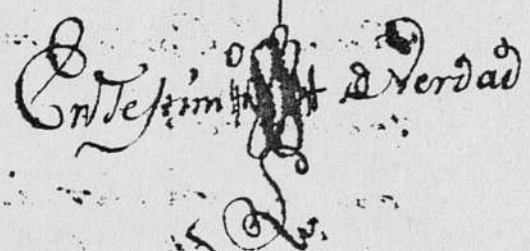 En Testimo de Verdad